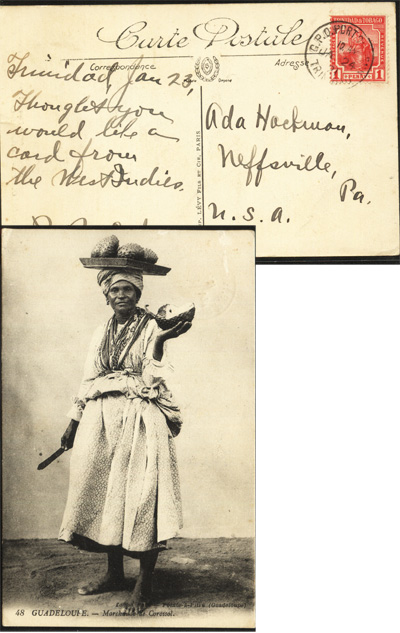 Carte Postale
Correspondance
Adresse
TRINIDAD & TOBAGO
G.P.O. PORT
1 1
Trinidad, Jan 23,
Thought you
would like a
card from
the West Indies.
Ada Hockman,
Neffsville,
Pa.
U.S.A.
LÉVY FILS ET CIE, PARIS
48 GUADELOUPE. — Marchande de Corossol.